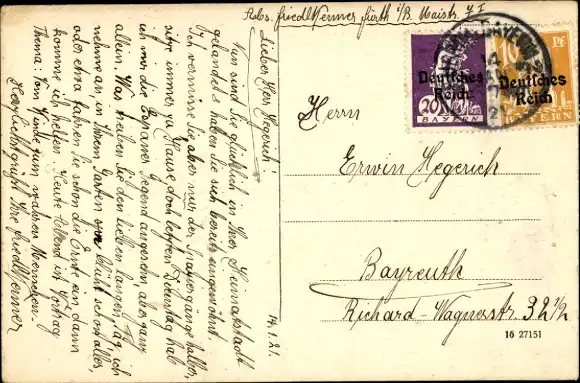 Abs. Friedl Kenner Fürth i/B. Maistr. 7 I
Lieber Herr Hegerich!
Nun sind Sie glücklich in Ihrer Heimatstadt
gelandet & haben Sie sich bereits eingewöhnt.
Ich vermisse Sie aber nur der Spaziergänge halber,
sitze immer zu Hause doch letzten Dienstag hab
ich mir die Espaner Gegend angesehen, aber ganz
allein. Was treiben Sie den lieben langen Tag, ich
nehme an, in Ihrem Garten blüht schon alles
oder etwa fahren Sie schon die Ernte ein, dann
komme ich helfen. Heute Abend ist Vortrag
Thema: Vom Kinde zum wahren Menschen.
Herzlichst grüßt Ihre Friedl Kenner
14.1.21.
Deutsches
Reich
20
BAYERN
10 Pf.
Deutsches
Reich
BAYERN
Herrn
Erwin Hegerich
Bayreuth
Richard-Wagnerstr. 32 1/2
16 27151